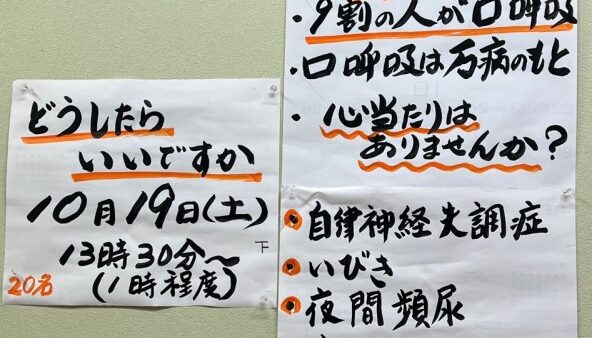 どうしたら
いいですか
10月19日(土)
13時30分〜
(1時程度)
20名
下
・9割の人が口呼吸
・口呼吸は万病のもと
・心当たりは
ありませんか?
自律神経失調症
いびき
夜間頻尿